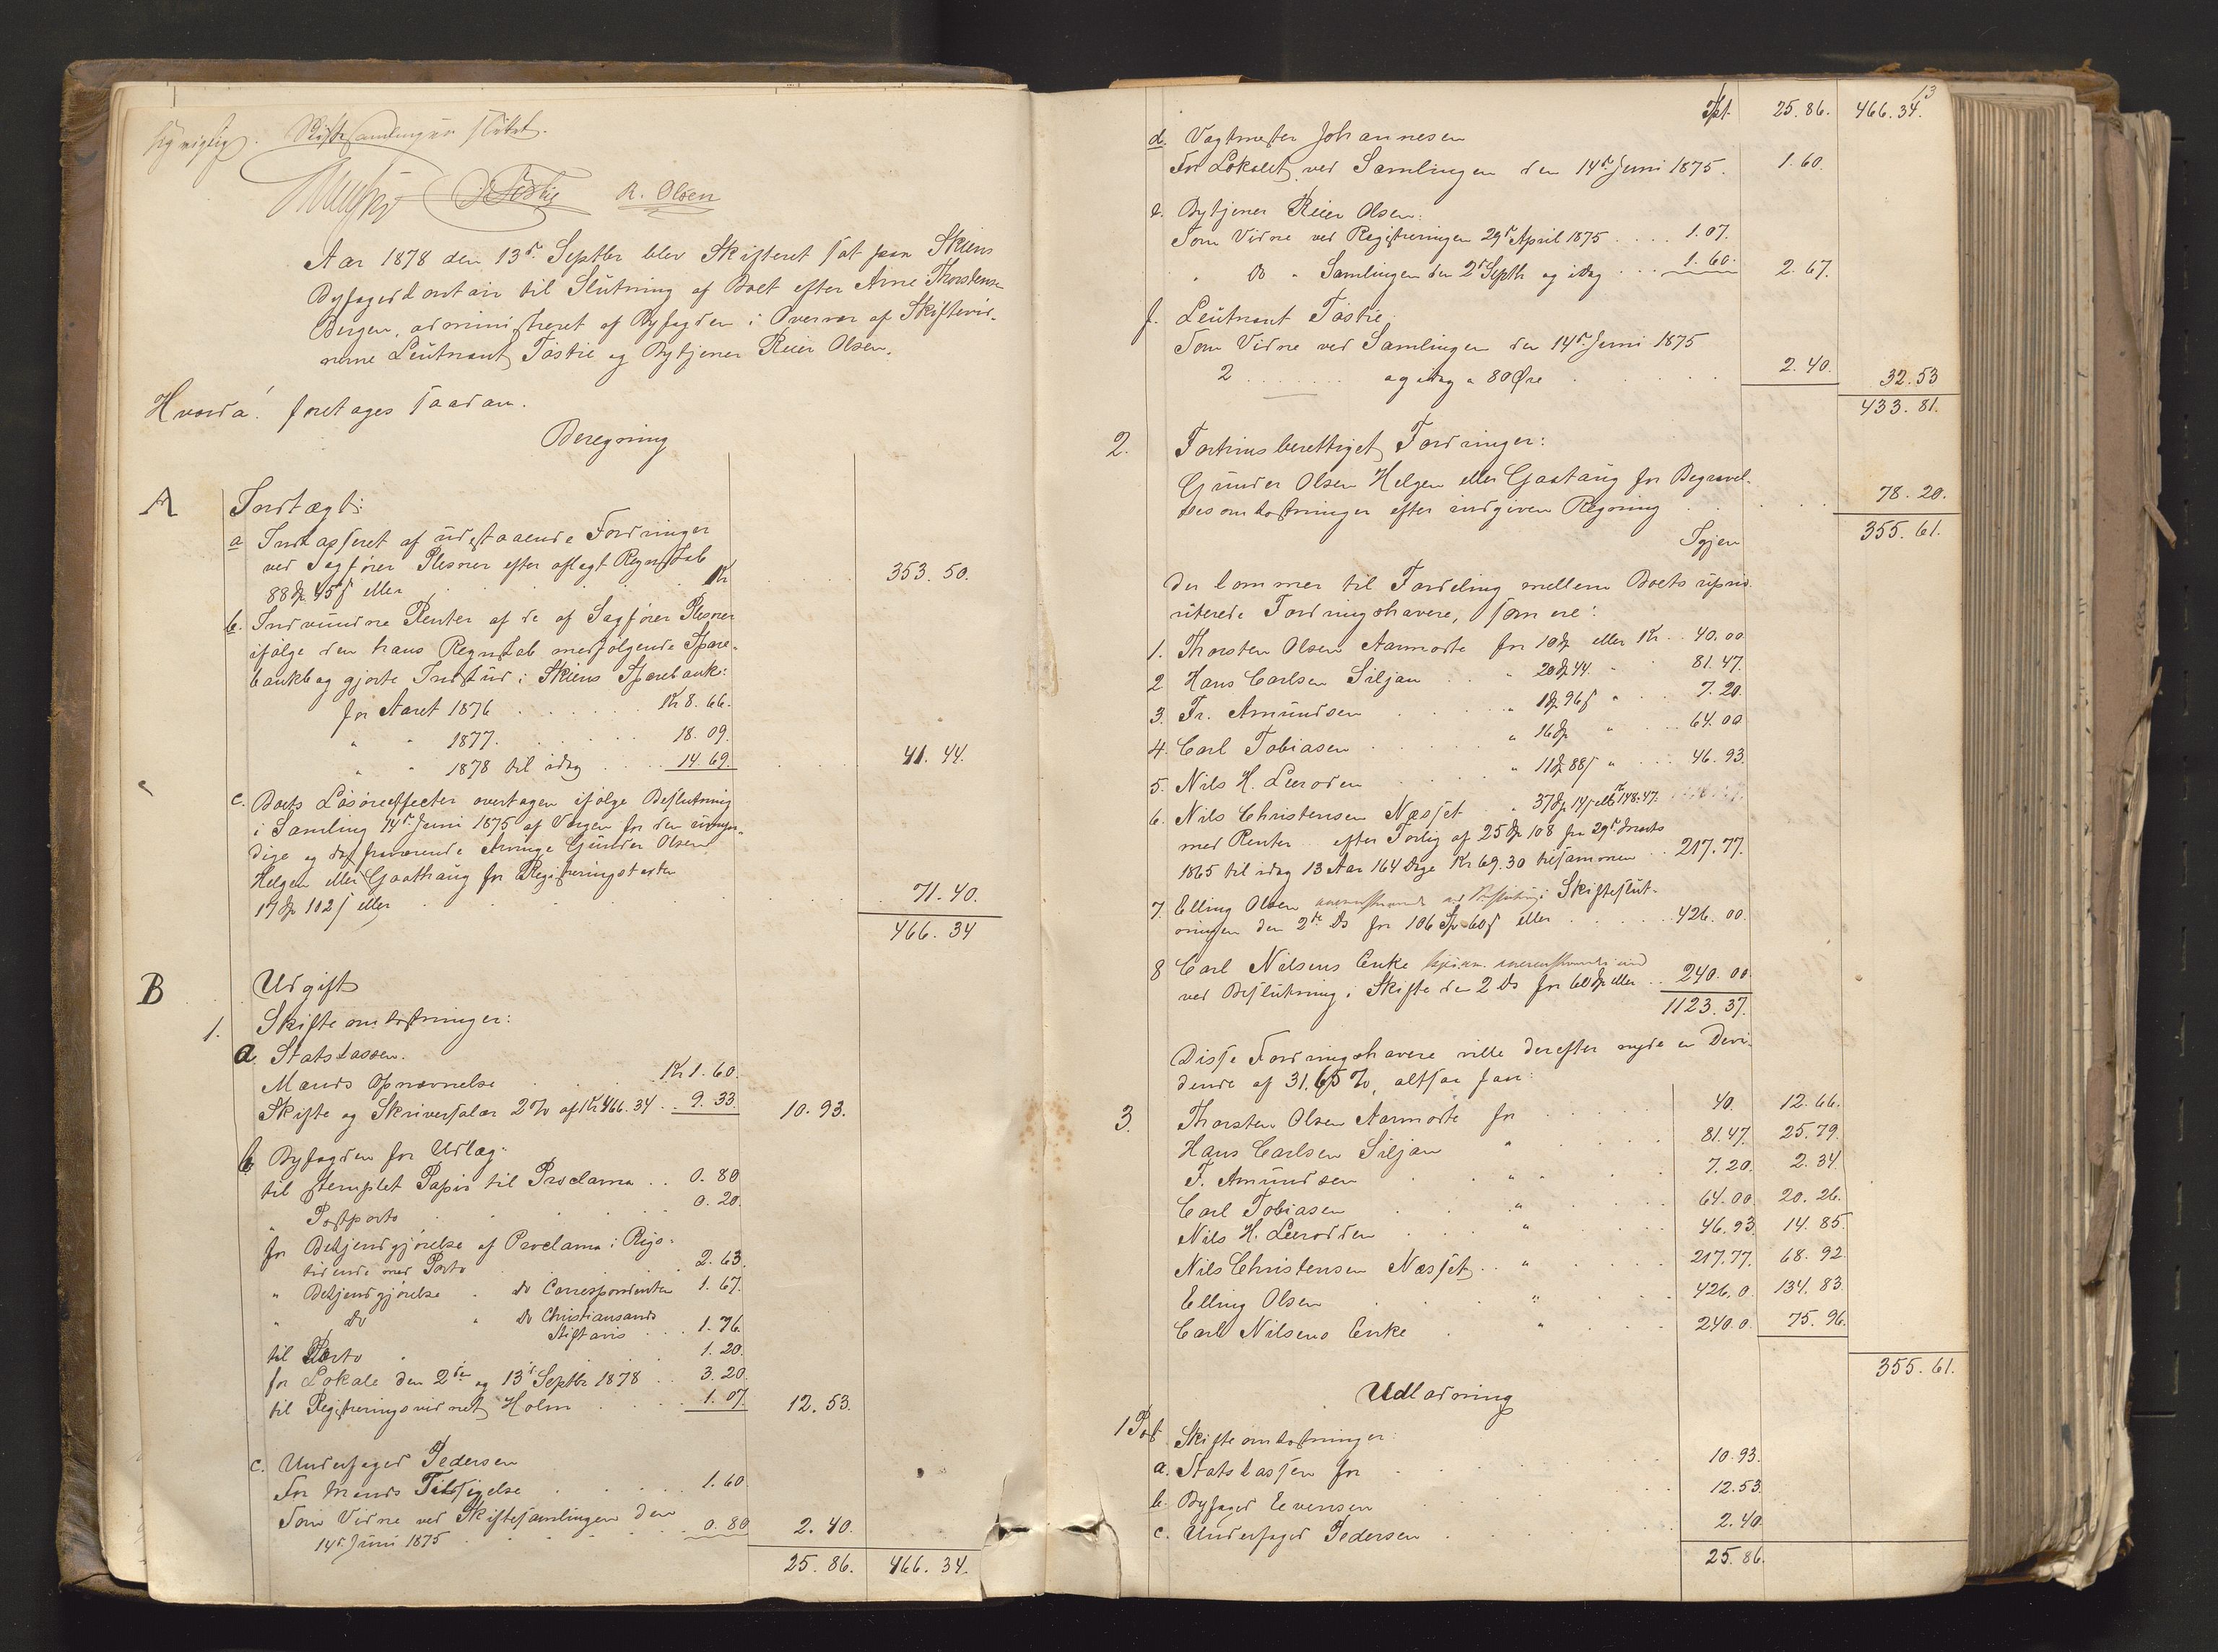 rigtig. Skiftesamlingen sluttet.
R. Olsen
Aar 1878 den 13de Septbr blev Skifteret sat paa Skiens
Byfogedcontoir til Slutning af Boet efter Arne Thorstensen
Bergen, administreret af Byfogden i Overvær af Skiftevid-
nerne Leutnant Tostie og Bytjener Reier Olsen.
Hvorda! foretages saadan.
Beregning
A Indtægt:
a Indkasseret af udestaaende Fordringer
ved Sagfører Plesner efter aflagt Regnskab
88 Sp 45 s eller Kr 353. 50.
b. Indvundne Renter af de af Sagfører Plesner
ifølge den hans Regnskab medfølgende Spare-
bankbog gjorte Indskud i Skiens Sparebank:
for Aaret 1876 Kr 8. 66.
" " 1877. 18. 09.
" " 1878 til idag 14. 69. 41. 44.
c. Boets Løsøreeffecter overtagen ifølge Beslutning
i Samling 14de Juni 1875 af Værgen for den umyn-
dige og fraværende Arvinge Gunder Olsen
Helgen eller Gaathaug for Registreringstaxten
17 Sp 102 s eller 71. 40.
466. 34
B Udgift
1. Skifteomkostninger:
a. Statskassen.
Mænds Opnævnelse Kr 1. 60.
Skifte og Skriversalær 2 % af Kr 466. 34. 9. 33. 10. 93.
b Byfogden for Udlæg:
til stemplet Papir til Proclama 0. 80
" Postporto 0. 20.
for Bekjendgjørelse af Proclama i Rigs-
tidende med Porto 2. 63.
" Bekjendgjørelse " do Correspondenten 1. 67.
" do " do Christiansands
Stiftavis 1. 76.
til Porto 1. 20.
for Lokale den 2den og 13de Septbr 1878 3. 20.
til Registreringsvidnet Holm 1. 07. 12. 53.
c. Underfoged Pedersen
For Mænds Tilsigelse 1. 60.
Som Vidne ved Skiftesamlingen den
14de Juni 1875 0. 80 2. 40.
25. 86. 466. 34.
13
Tpt. 25. 86. 466. 34.
d. Vagtmester Johannesen
For Lokalet ved Samlingen den 14de Juni 1875. 1. 60.
e. Bytjener Reier Olsen:
Som Vidne ved Registreringen 29de April 1875 1. 07.
" do " Samlingen den 2de Septbr og idag 1. 60. 2. 67.
f. Leutnant Tostie
Som Vidne ved Samlingen den 14de Juni 1875
2 og idag a 80 Øre 2. 40. 32. 53
433. 81.
2. Fortrinsberettiget Fordringer:
Gunder Olsen Helgen eller Gaataug for Begravel-
sesomkostninger efter indgiven Regning 78. 20.
Igjen 355. 61.
der kommer til Fordeling mellem Boets uprio-
riterede Fordringshavere, som ere:
1. Thorsten Olsen Aarmodte for 10 Sp eller Kr. 40. 00
2 Hans Carlsen Siljan " 20 Sp 44. " 81. 47.
3. Fr. Amundsen " 1 Sp 96 s " 7. 20.
4. Carl Tobiasen " 16 Sp " 64. 00
5. Nils H. Leeroden " 11 Sp 88 s " 46. 93.
6. Nils Christensen Næsset " 37 Sp 14 s eller Kr 148. 47.
med Renter efter Forlig af 25 Sp 108 fra 29de Marts
1865 til idag 13 Aar 164 Dage Kr 69. 30 tilsammen 217. 77.
7. Elling Olsen i Skifteslut-
ningen den 2de ds for 106 Sp 60 s eller 426. 00.
8 Carl Nilsens Enke
ved Beslutning i Skifte den 2 ds for 60 Sp eller 240. 00.
1123. 37.
Disse Fordringshavere ville derefter nyde en Divi-
dende af 31.65 %, altsaa faar:
3. Thorsten Olsen Aarmodte for 40. 12. 66.
Hans Carlsen Siljan " 81. 47. 25. 79.
F. Amundsen " 7. 20. 2. 34.
Carl Tobiasen " 64. 00 20. 26.
Nils H. Leerodden " 46. 93. 14. 85.
Nils Christensen Næsset " 217. 77. 68. 92.
Elling Olsen " 426. 0. 134. 83.
Carl Nilsens Enke " 240. 0. 75. 96.
355. 61.
Udlodning
1 Post Skifteomkostninger:
a. Statskassen for 10. 93.
b. Byfoged Evensen 12. 53.
c. Underfoged Pedersen 2. 40.
25. 86.